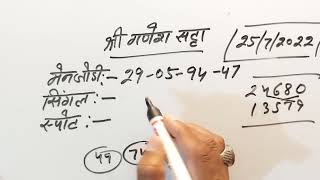 श्री गणेश सट्टा
25/7/2022
मेनजोडी:- 29-05-94-47
24680
13579
सिंगल:-
स्पोट:-
49